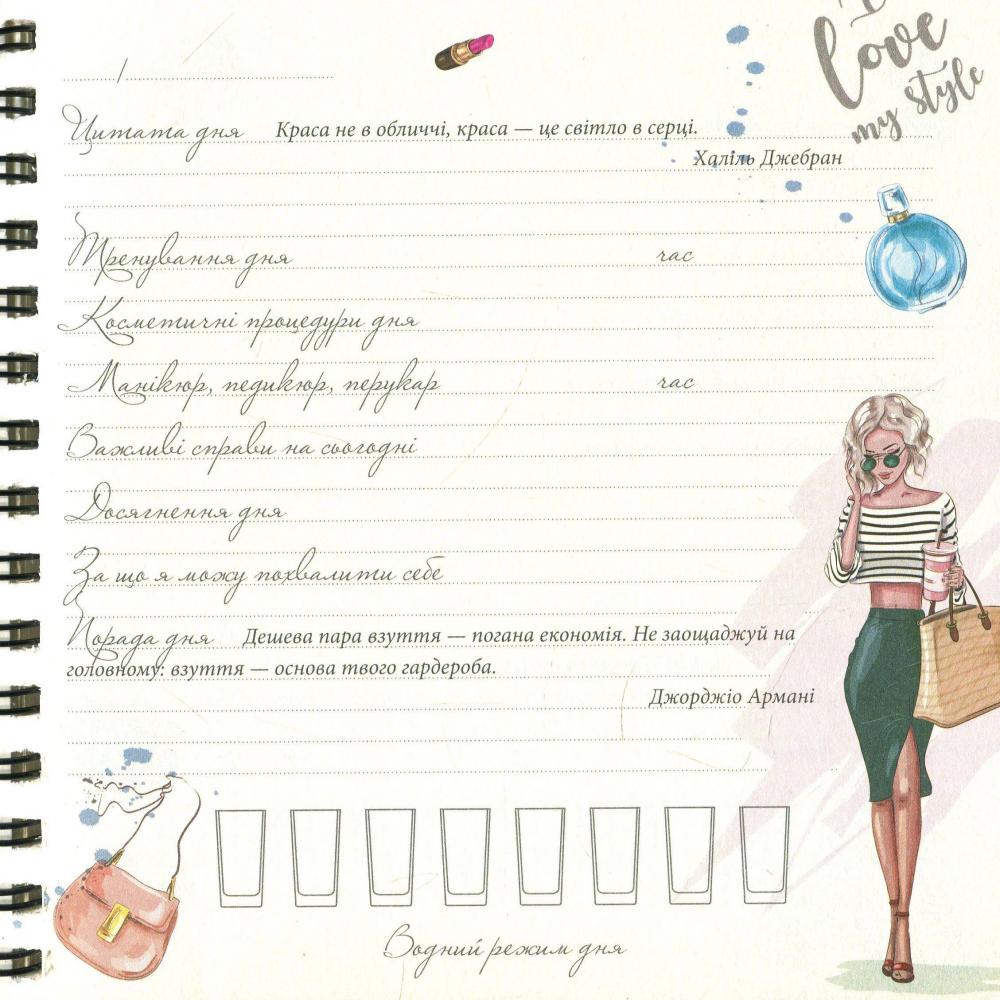 I
love
my style
/
Цитата дня Краса не в обличчі, краса — це світло в серці.
Халіль Джебран
Тренування дня час
Косметичні процедури дня
Манікюр, педикюр, перукар час
Важливі справи на сьогодні
Досягнення дня
За що я можу похвалити себе
Порада дня Дешева пара взуття — погана економія. Не заощаджуй на
головному: взуття — основа твого гардероба.
Джорджіо Армані
Водний режим дня